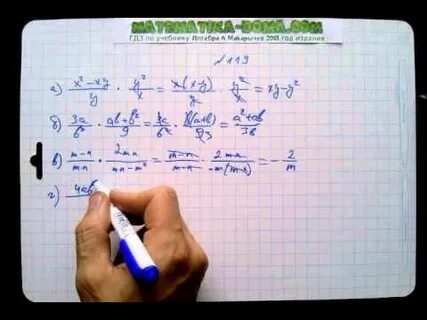 MATEMATIKA-DOMA.COM
ГДЗ по учебнику Алгебра 8 Макарычев 2008 год издания
№ 119
а) (x² - xy)/y · y²/x = x(x-y)/y · y²/x = xy - y²
б) 3a/b² · (ab+b²)/9 = 3a/b² · b(a+b)/93 = (a²+ab)/3b
в) (m-n)/mn · 2mn/(mn-m²) = (m-n)/mn · 2mn/-m(m-n) = -2/m
г) 4ab